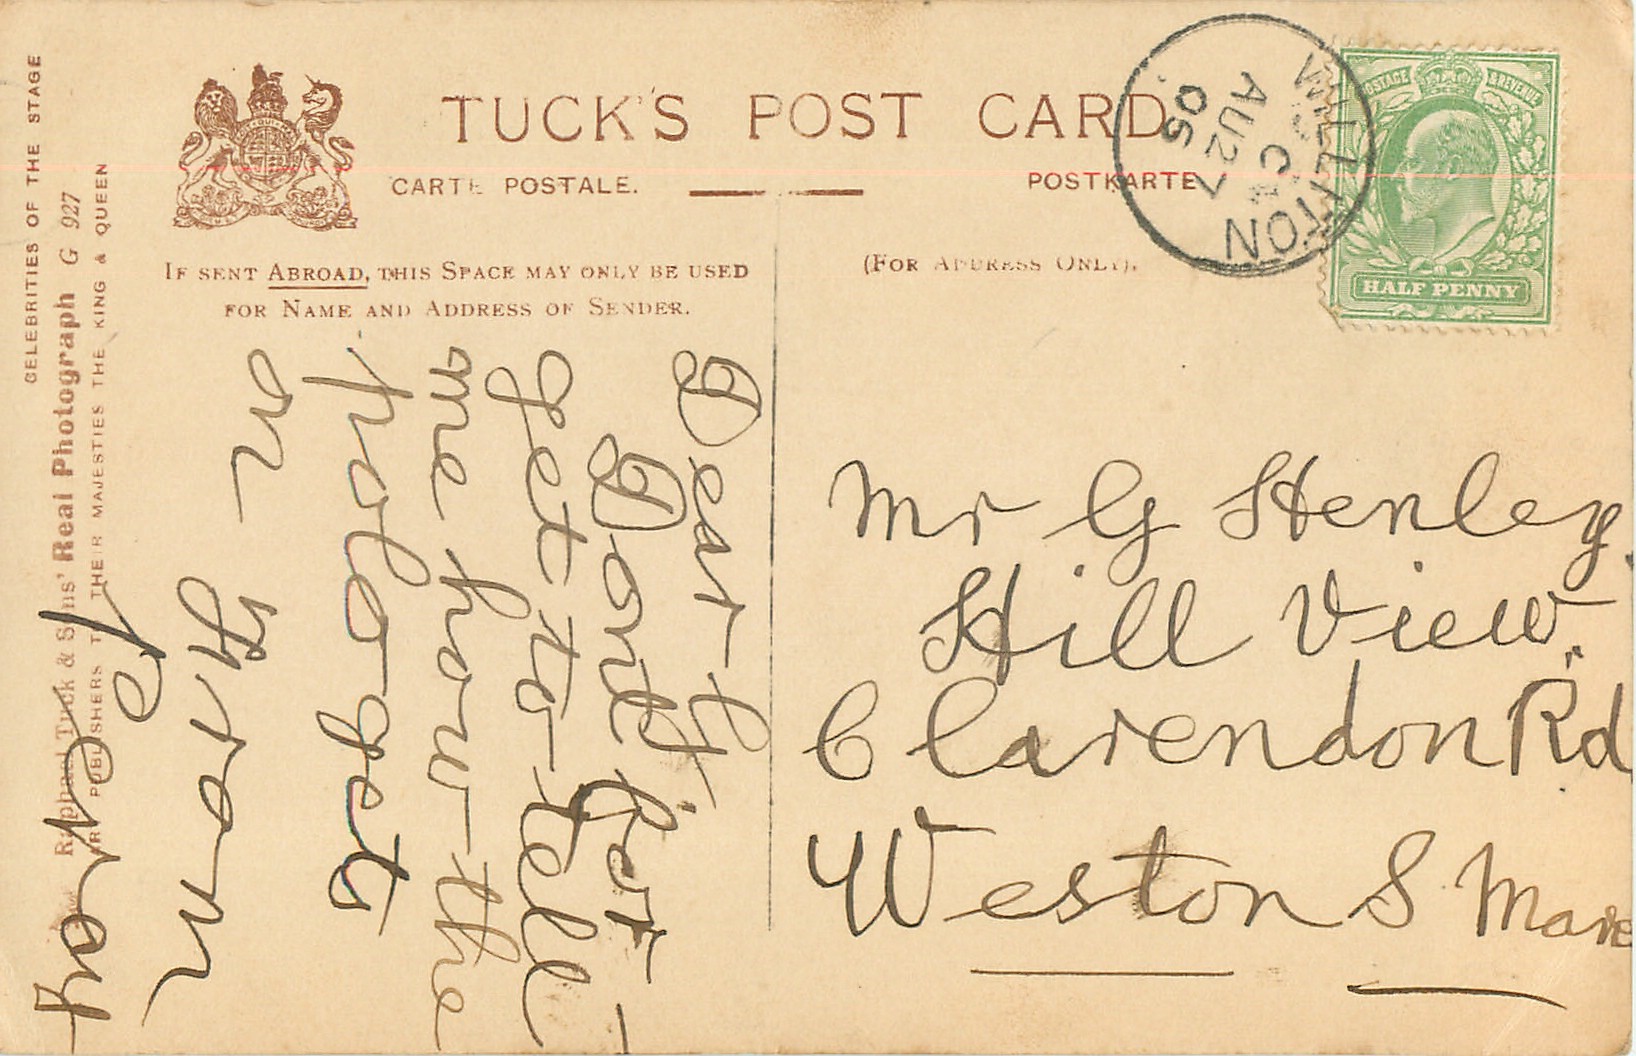 TUCK'S POST CARD
CARTE POSTALE.
POSTKARTE
IF SENT ABROAD, THIS SPACE MAY ONLY BE USED
FOR NAME AND ADDRESS OF SENDER.
(FOR ADDRESS ONLY).
WILLITON
C
AU 27
05
POSTAGE & REVENUE
HALF PENNY
CELEBRITIES OF THE STAGE
Raphael Tuck & Sons' Real Photograph G 927
PUBLISHERS TO THEIR MAJESTIES THE KING & QUEEN
Dear G.
Dont for-
get to tell
me how the
polo gets
on
from
Percy
Mr G Henley.
Hill View.
Clarendon Rd
Weston S Mare